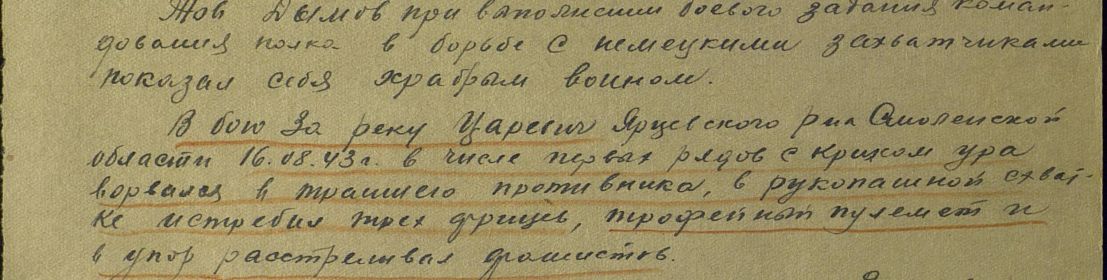 Тов Дымов при выполнении боевого задания коман-
дования полка в борьбе с немецкими захватчиками
показал себя храбрым воином.
В бою за реку Царевич Ярцевского р-на Смоленской
области 16.08.43г. в числе первых рядов с криком ура
ворвался в траншею противника, в рукопашной схват-
ке истребил трех фрицев, трофейный пулемет и
в упор расстреливал фашистов.